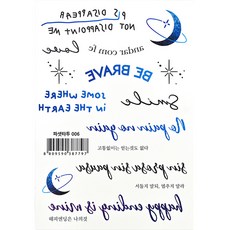 PLS DISAPPEAR
NOT DISAPPOINT ME
love
andar com fe
BE BRAVE
SOMEWHERE
IN THE EARTH
Smile
파셋타투 006
No pain no gain
고통없이는 얻는것도 없다
sin prosa sin pausa
서둘지 말되, 멈추지 말라
happy ending is mine
해피엔딩은 나의것